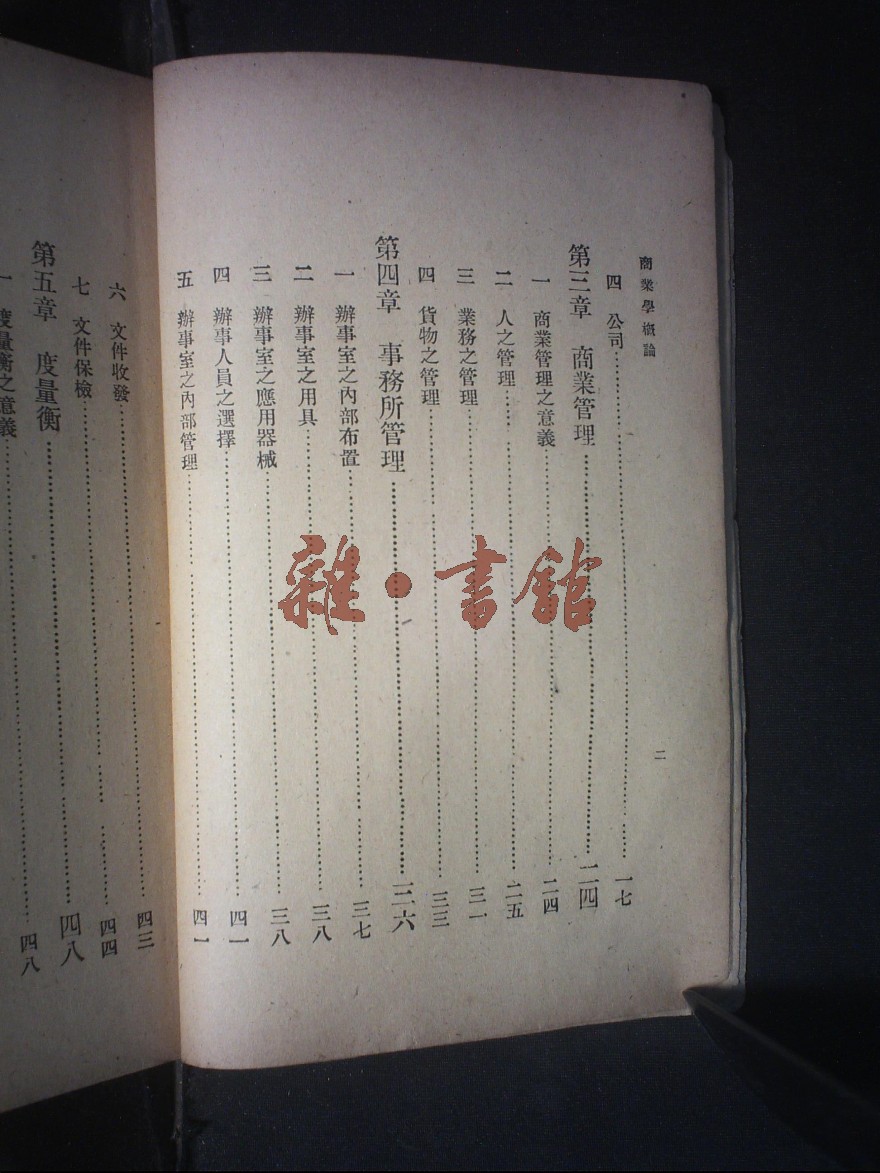 商業學概論
二
四 公司 一七
第三章 商業管理 二四
一 商業管理之意義 二四
二 人之管理 二五
三 業務之管理 三一
四 貨物之管理 三三
第四章 事務所管理 三六
一 辦事室之內部布置 三七
二 辦事室之用具 三八
三 辦事室之應用器械 三八
四 辦事人員之選擇 四一
五 辦事室之內部管理 四一
六 文件收發 四三
七 文件保檢 四四
第五章 度量衡 四八
一 度量衡之意義 四八
雜·書館